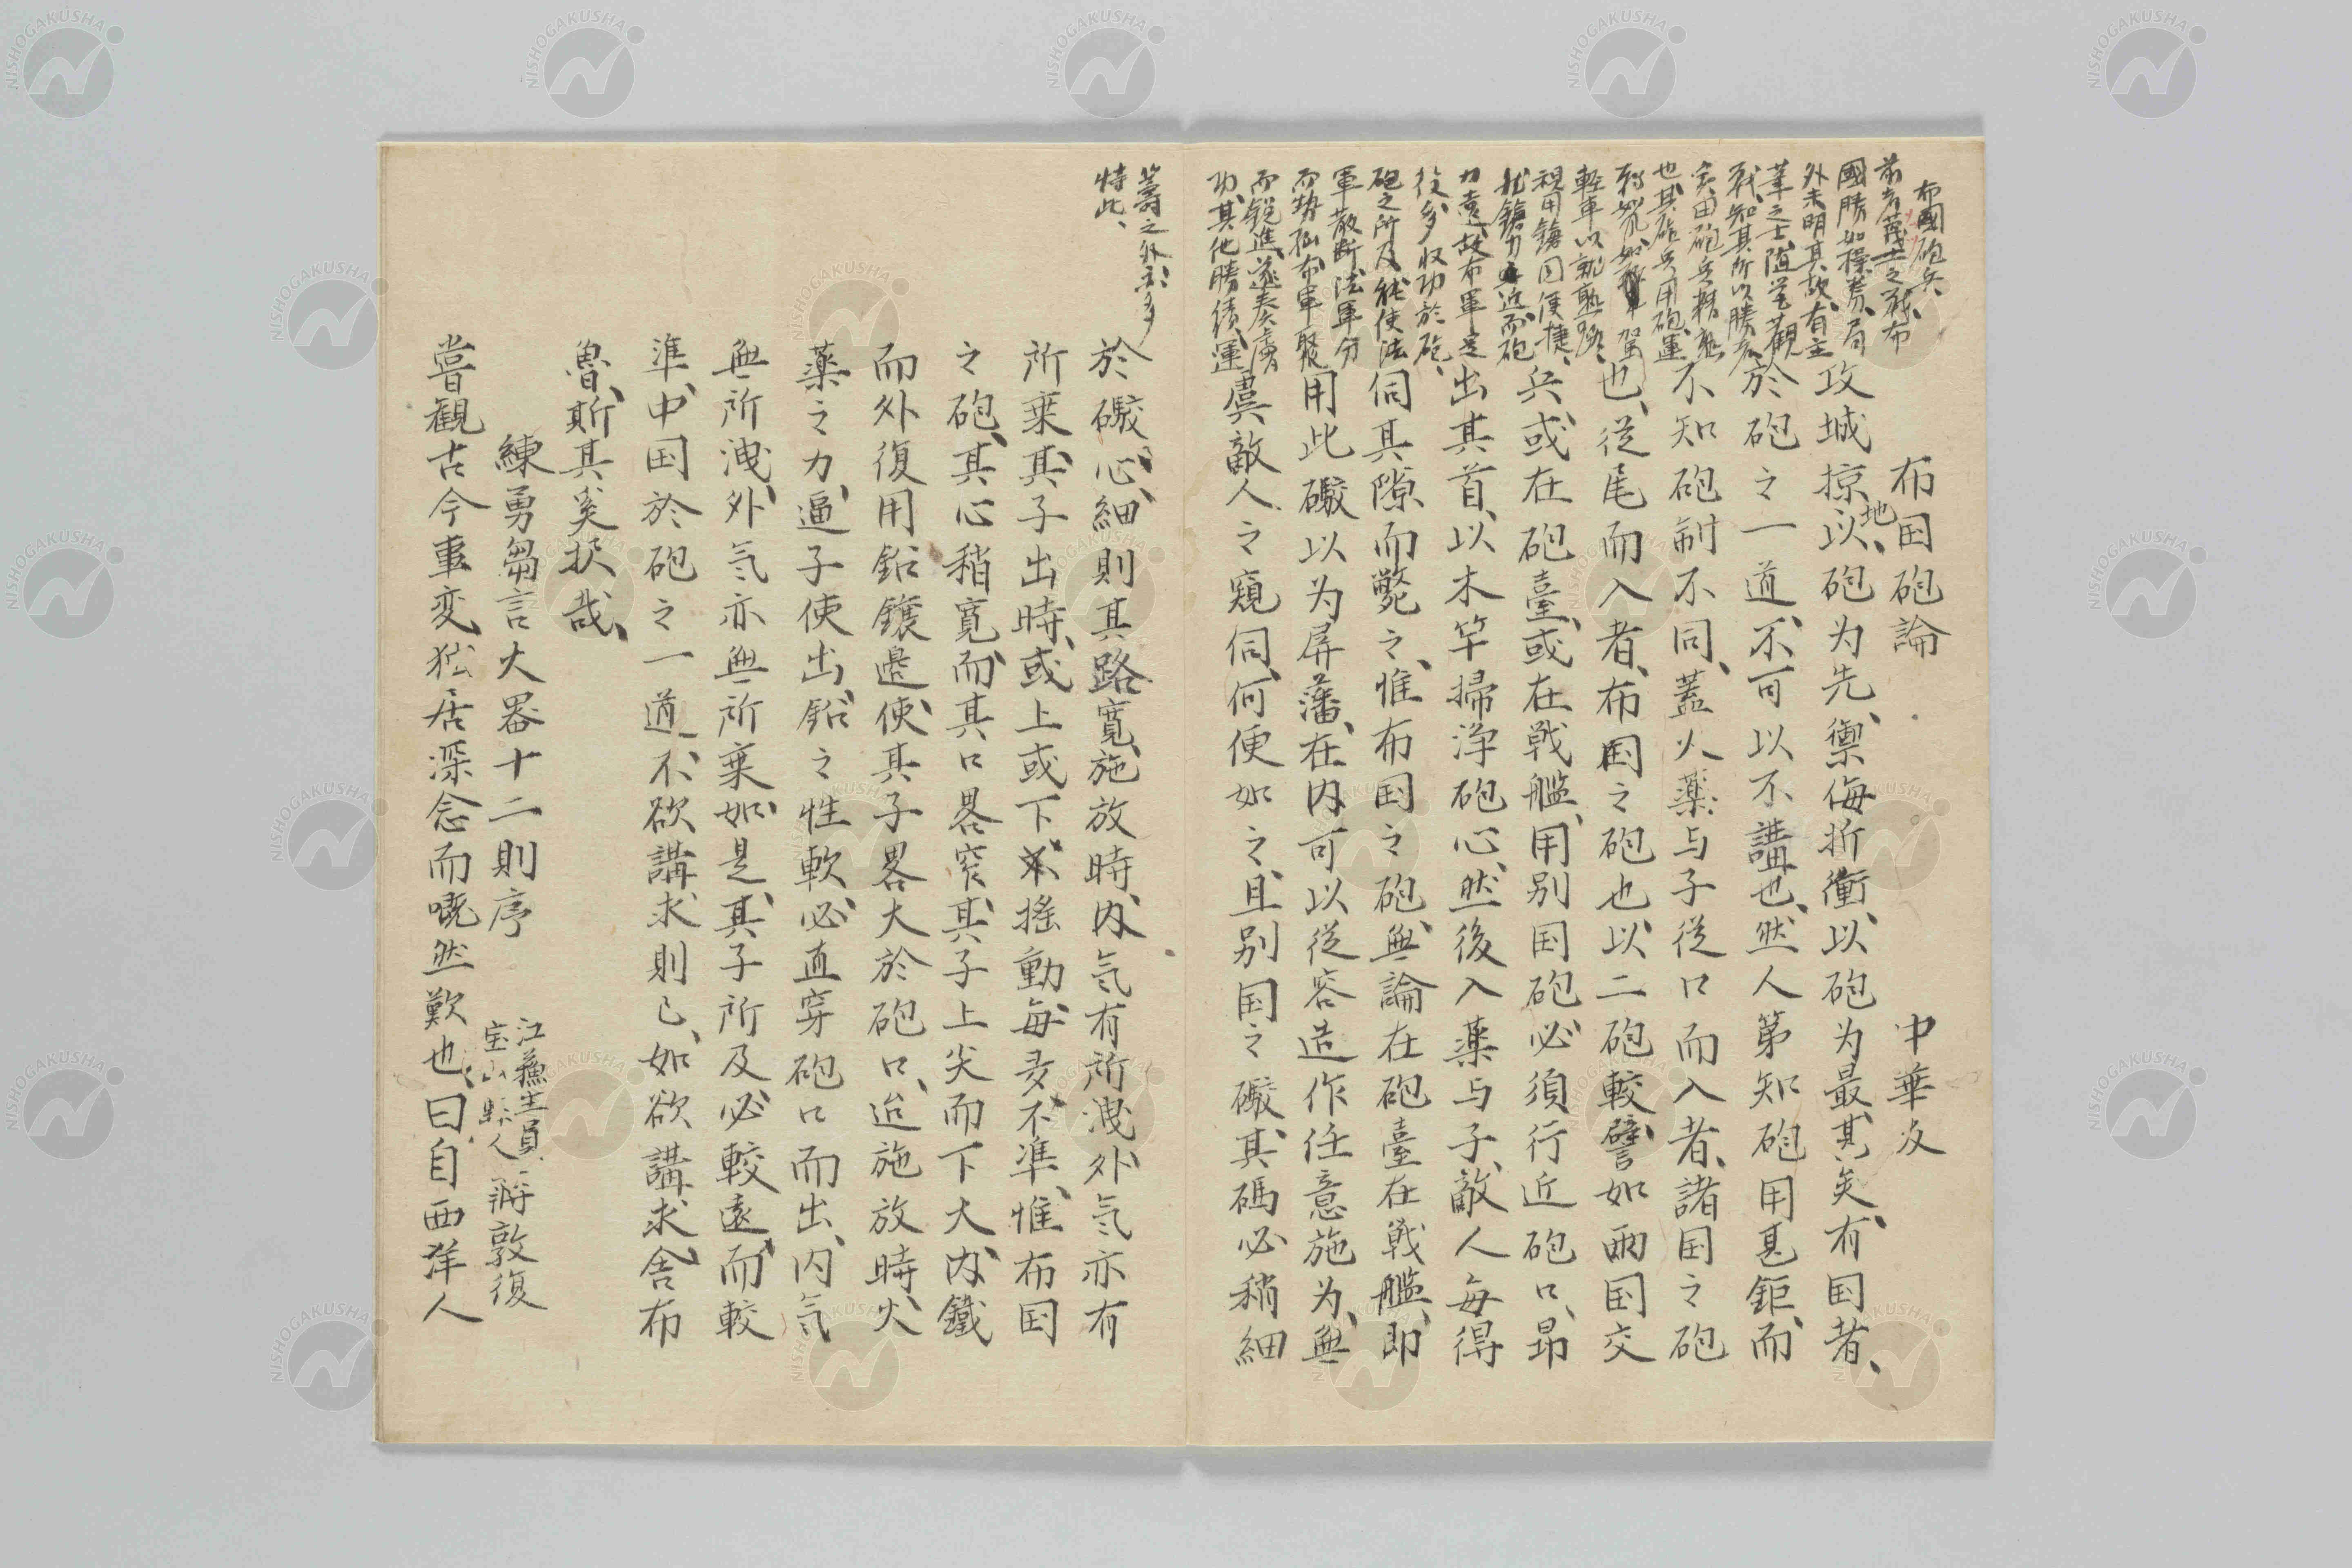 布国砲論　中華友
攻城掠地以砲为先、禦侮折衝、以砲为最、其矣、有国者、
於砲之一道、不可以不講也、然人第知砲用甚鉅、而
不知砲制不同、蓋火薬与子従口而入者、諸国之砲
也、従尾而入者、布国之砲也、以二砲較譬如両国交
兵、或在砲臺、或在戦艦、用别国砲、必須行近砲口、昻
出其首、以木竿掃浄砲心、然後入薬与子、敵人每得
伺其隙而斃之、惟布国之砲、無論在砲臺在戦艦、即
用此礮以为屏藩、在内可以従容造作任意施为、無
虞敵人之窺伺、何便如之、且别国之礮、其碼必稍細
於礮心、細則其路寛、施放時、内気有所洩、外気亦有
所乗、其子出時、或上或下、揺動每多不準、惟布国
之砲、其心稍寛、而其口畧窄、其子上尖而下大、内鐵
而外復用鉛鑲邊、使其子畧大於砲口、迨施放時、火
薬之力、逼子使出、鉛之性軟、必直穿砲口而出、内気
無所洩、外気亦無所乗、如是、其子所及必較遠、而較
準、中国於砲之一道、不欲講求則已、如欲講求、舎布
魯、斯其奚択哉、
練勇芻言大器十二則序
江蘇生員
宝山縣人
蒋敦復
嘗観古今事変、独居深念而嘅然歎也、曰、自西洋人
布國砲兵、
之戦、布
國勝如操券、局
外未明其故、有主
筆之士、隨營觀
戦、知其所以勝者、
実由砲兵精熟
也、其砲兵用砲、運
軽車以就熟路、
視用鎗同便捷、
力遠、故布軍
收功於砲、
砲之所及、能使法
軍散断、法軍分
而勢孤、布軍聚
而鋭進、遂奏膚
功、其他勝績、運
籌之外、
特此、